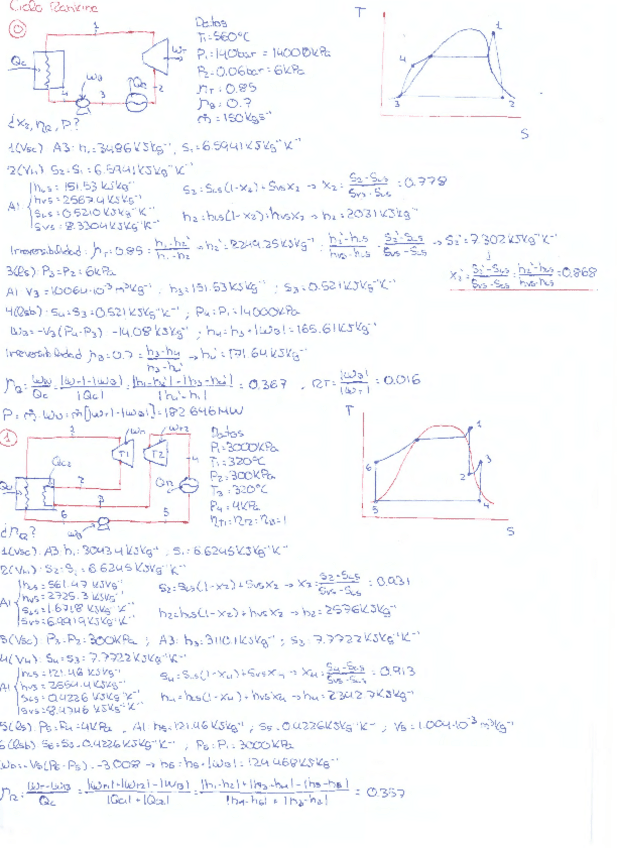 Ciclo Rankine
0
Datos
T₁=560°C
P₁=140bar=14000kPa
P₂=0.06bar=6kPa
ηT=0.85
ηB=0.7
ṁ=150kgs⁻¹
¿x₂, ηR, P?
1(Vsc): A3: h₁=3486KJkg⁻¹, S₁=6.5941KJkg⁻¹K⁻¹
2(Vh): S₂=S₁=6.5941KJkg⁻¹K⁻¹
A1 | hLS=151.53KJkg⁻¹
hVS=2567.4KJkg⁻¹
SLS=0.5210KJkg⁻¹K⁻¹
SVS=8.3304KJkg⁻¹K⁻¹
S₂=SLS(1-x₂)+SVSx₂→x₂=(S₂-SLS)/(SVS-SLS)=0.778
h₂=hLS(1-x₂)+hVSx₂→h₂=2031KJkg⁻¹
Irreversibilidad: ηT=0.85=(h₁-h₂')/(h₁-h₂)→h₂'=2249.25KJkg⁻¹: (h₂'-hLS)/(hVS-hLS)=(S₂'-SLS)/(SVS-SLS)→S₂'=7.302KJkg⁻¹K⁻¹
x₂'=(S₂'-SLS)/(SVS-SLS)=(h₂'-hLS)/(hVS-hLS)=0.868
3(Ls): P₃=P₂=6kPa
A1: V₃=1.0064·10⁻³m³kg⁻¹, h₃=151.53KJkg⁻¹; S₃=0.521KJkg⁻¹K⁻¹
4(Lsb): S₄=S₃=0.521KJkg⁻¹K⁻¹; P₄=P₁=14000kPa
WB=-V₃(P₄-P₃)=-14.08KJkg⁻¹; h₄=h₃+|WB|=165.61KJkg⁻¹
Irreversibilidad ηB=0.7=(h₃-h₄)/(h₃-h₄')→h₄'=171.64KJkg⁻¹
ηR=WN/QC=(|WT|-|WB|)/|QC|=(|h₁-h₂'|-|h₃-h₄'|)/|h₄'-h₁|=0.367, RT=|WB|/|WT|=0.016
P=ṁ·WN=ṁ[|WT|-|WB|]=182.646MW
1
Datos
P₁=3000kPa
T₁=320°C
P₂=300kPa
T₃=320°C
P₄=4kPa
ηT1=ηT2=ηB=1
¿ηR?
1(Vsc): A3: h₁=3043.4KJkg⁻¹, S₁=6.6245KJkg⁻¹K⁻¹
2(Vh): S₂=S₁=6.6245KJkg⁻¹K⁻¹
A1 | hLS=561.47KJkg⁻¹
hVS=2725.3KJkg⁻¹
SLS=1.6718KJkg⁻¹K⁻¹
SVS=6.9919KJkg⁻¹K⁻¹
S₂=SLS(1-x₂)+SVSx₂→x₂=(S₂-SLS)/(SVS-SLS)=0.931
h₂=hLS(1-x₂)+hVSx₂→h₂=2576KJkg⁻¹
3(Vsc): P₃=P₂=300kPa; A3: h₃=3110.1KJkg⁻¹; S₃=7.7722KJkg⁻¹K⁻¹
4(Vh): S₄=S₃=7.7722KJkg⁻¹K⁻¹
A1 | hLS=121.46KJkg⁻¹
hVS=2554.4KJkg⁻¹
SLS=0.4226KJkg⁻¹K⁻¹
SVS=8.4746KJkg⁻¹K⁻¹
S₄=SLS(1-x₄)+SVSx₄→x₄=(S₄-SLS)/(SVS-SLS)=0.913
h₄=hLS(1-x₄)+hVSx₄→h₄=2342.7KJkg⁻¹
5(Ls): P₅=P₄=4kPa, A1: h₅=121.46KJkg⁻¹; S₅=0.4226KJkg⁻¹K⁻¹; V₅=1.004·10⁻³m³kg⁻¹
6(Lsb): S₆=S₅=0.4226KJkg⁻¹K⁻¹; P₆=P₁=3000kPa
WB=-V₅(P₆-P₅)=-3.008→h₆=h₅+|WB|=124.468KJkg⁻¹